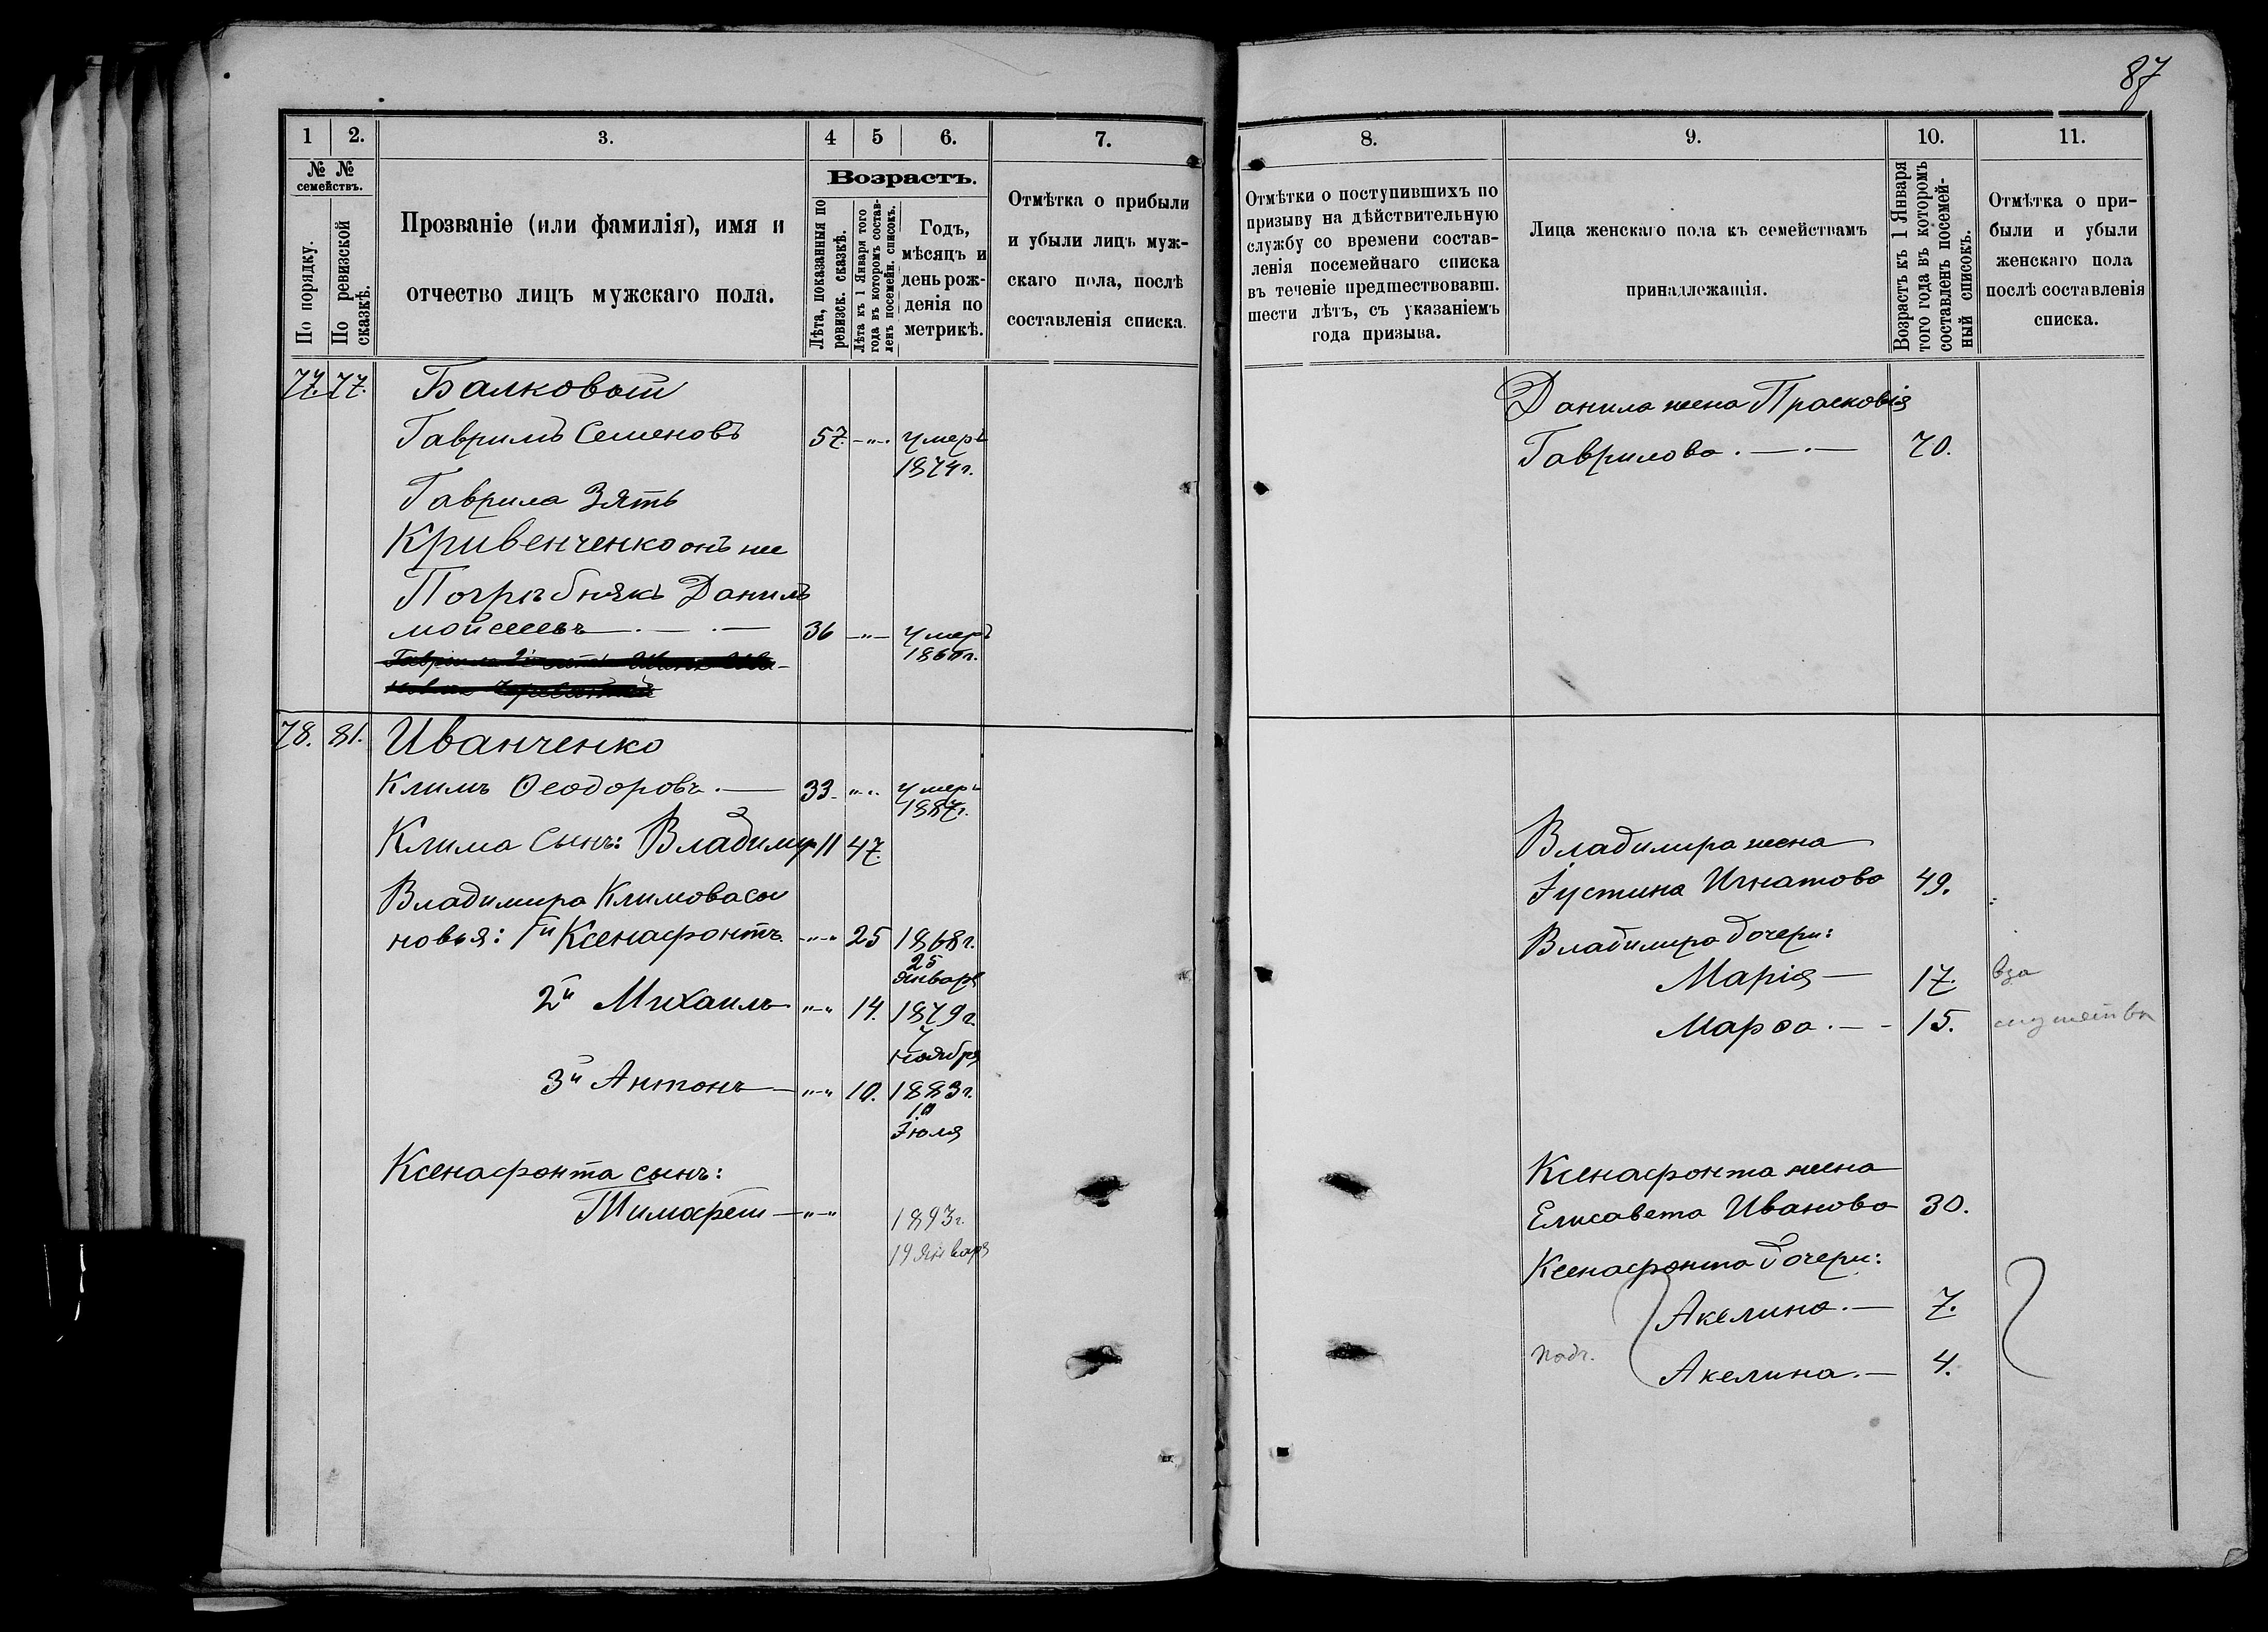 87
1 2. 3. 4 5 6. 7.
№ № семействъ.
По порядку.
По ревизской сказкѣ.
Прозваніе (или фамилія), имя и
отчество лицъ мужскаго пола.
Возрастъ.
Лѣта, показанныя по ревизск. сказкѣ.
Лѣта къ 1 Января того года въ которомъ составленъ посемейн. списокъ.
Годъ,
мѣсяцъ и
день рож-
денія по
метрикѣ.
Отмѣтка о прибыли
и убыли лицъ муж-
скаго пола, послѣ
составленія списка.
77. 77. Балковой
Гаврилъ Семеновъ 57. -"-. умеръ
1874г.
Гаврила Зять
Кривенченко онъ же
Погрѣбнякъ Данилъ
Мойсеевъ 36 -"- умеръ
186
78. 81. Иванченко
Климъ Ѳеодоровъ. — 33. -"-. умеръ
1887г.
Клима сынъ: Владимир 11 47.
Владимира Климова сы
новья: 1й Ксенафонтъ -"- 25 1868г.
25
января
2й Михаилъ -"- 14. 1879г.
7
ноября
3й Антонъ — -"- 10. 1883г.
10
Іюля
Ксенафонта сынъ:
Тимофей -"- 1893г.
19 января
8. 9. 10. 11.
Отмѣтки о поступившихъ по
призыву на дѣйствительную
службу со времени состав-
ленія посемейнаго списка
въ теченіе предшествовавш.
шести лѣтъ, съ указаніемъ
года призыва.
Лица женскаго пола къ семействамъ
принадлежащія.
Возрастъ къ 1 Января
того года въ которомъ
составленъ посемей-
ный списокъ.
Отмѣтка о при-
были и убыли
женскаго пола
послѣ составленія
списка.
Данила жена Прасковія
Гаврилова. —. — 70.
Владимира жена
Іустина Игнатова 49.
Владимира дочери:
Марія — 17.
Марѳа. — - 15.
Ксенафонта жена
Елисавета Иванова 30.
Ксенафонта дочери:
Акелина. — 7.
Акелина. — 4.